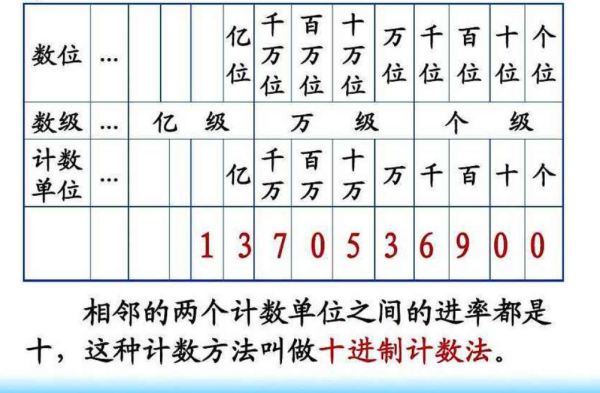 数位 … 亿位 千万位 百万位 十万位 万位 千位 百位 十位 个位
数级 … 亿级 万级 个级
计数单位 … 亿 千万 百万 十万 万 千 百 十 个
1 3 7 0 5 3 6 9 0 0
相邻的两个计数单位之间的进率都是
十，这种计数方法叫做十进制计数法。